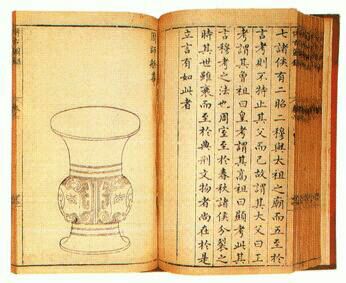 七諸侯有二昭二穆與太祖之廟而五至於
言考則不特止其父而已故謂其大父曰王
考謂其曾祖曰皇考謂其高祖曰顯考此其
言穆考之法也周室至於春秋諸侯分裂之
時其世雖衰而至於典刑文物者尚在於是
立言有如此者